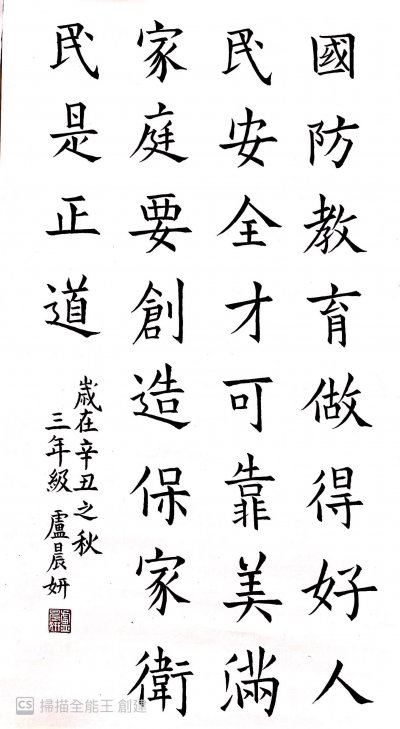 國防教育做得好人
民安全才可靠美滿
家庭要創造保家衛
民是正道
歲在辛丑之秋
三年級 盧晨妍
CS 掃描全能王 創建